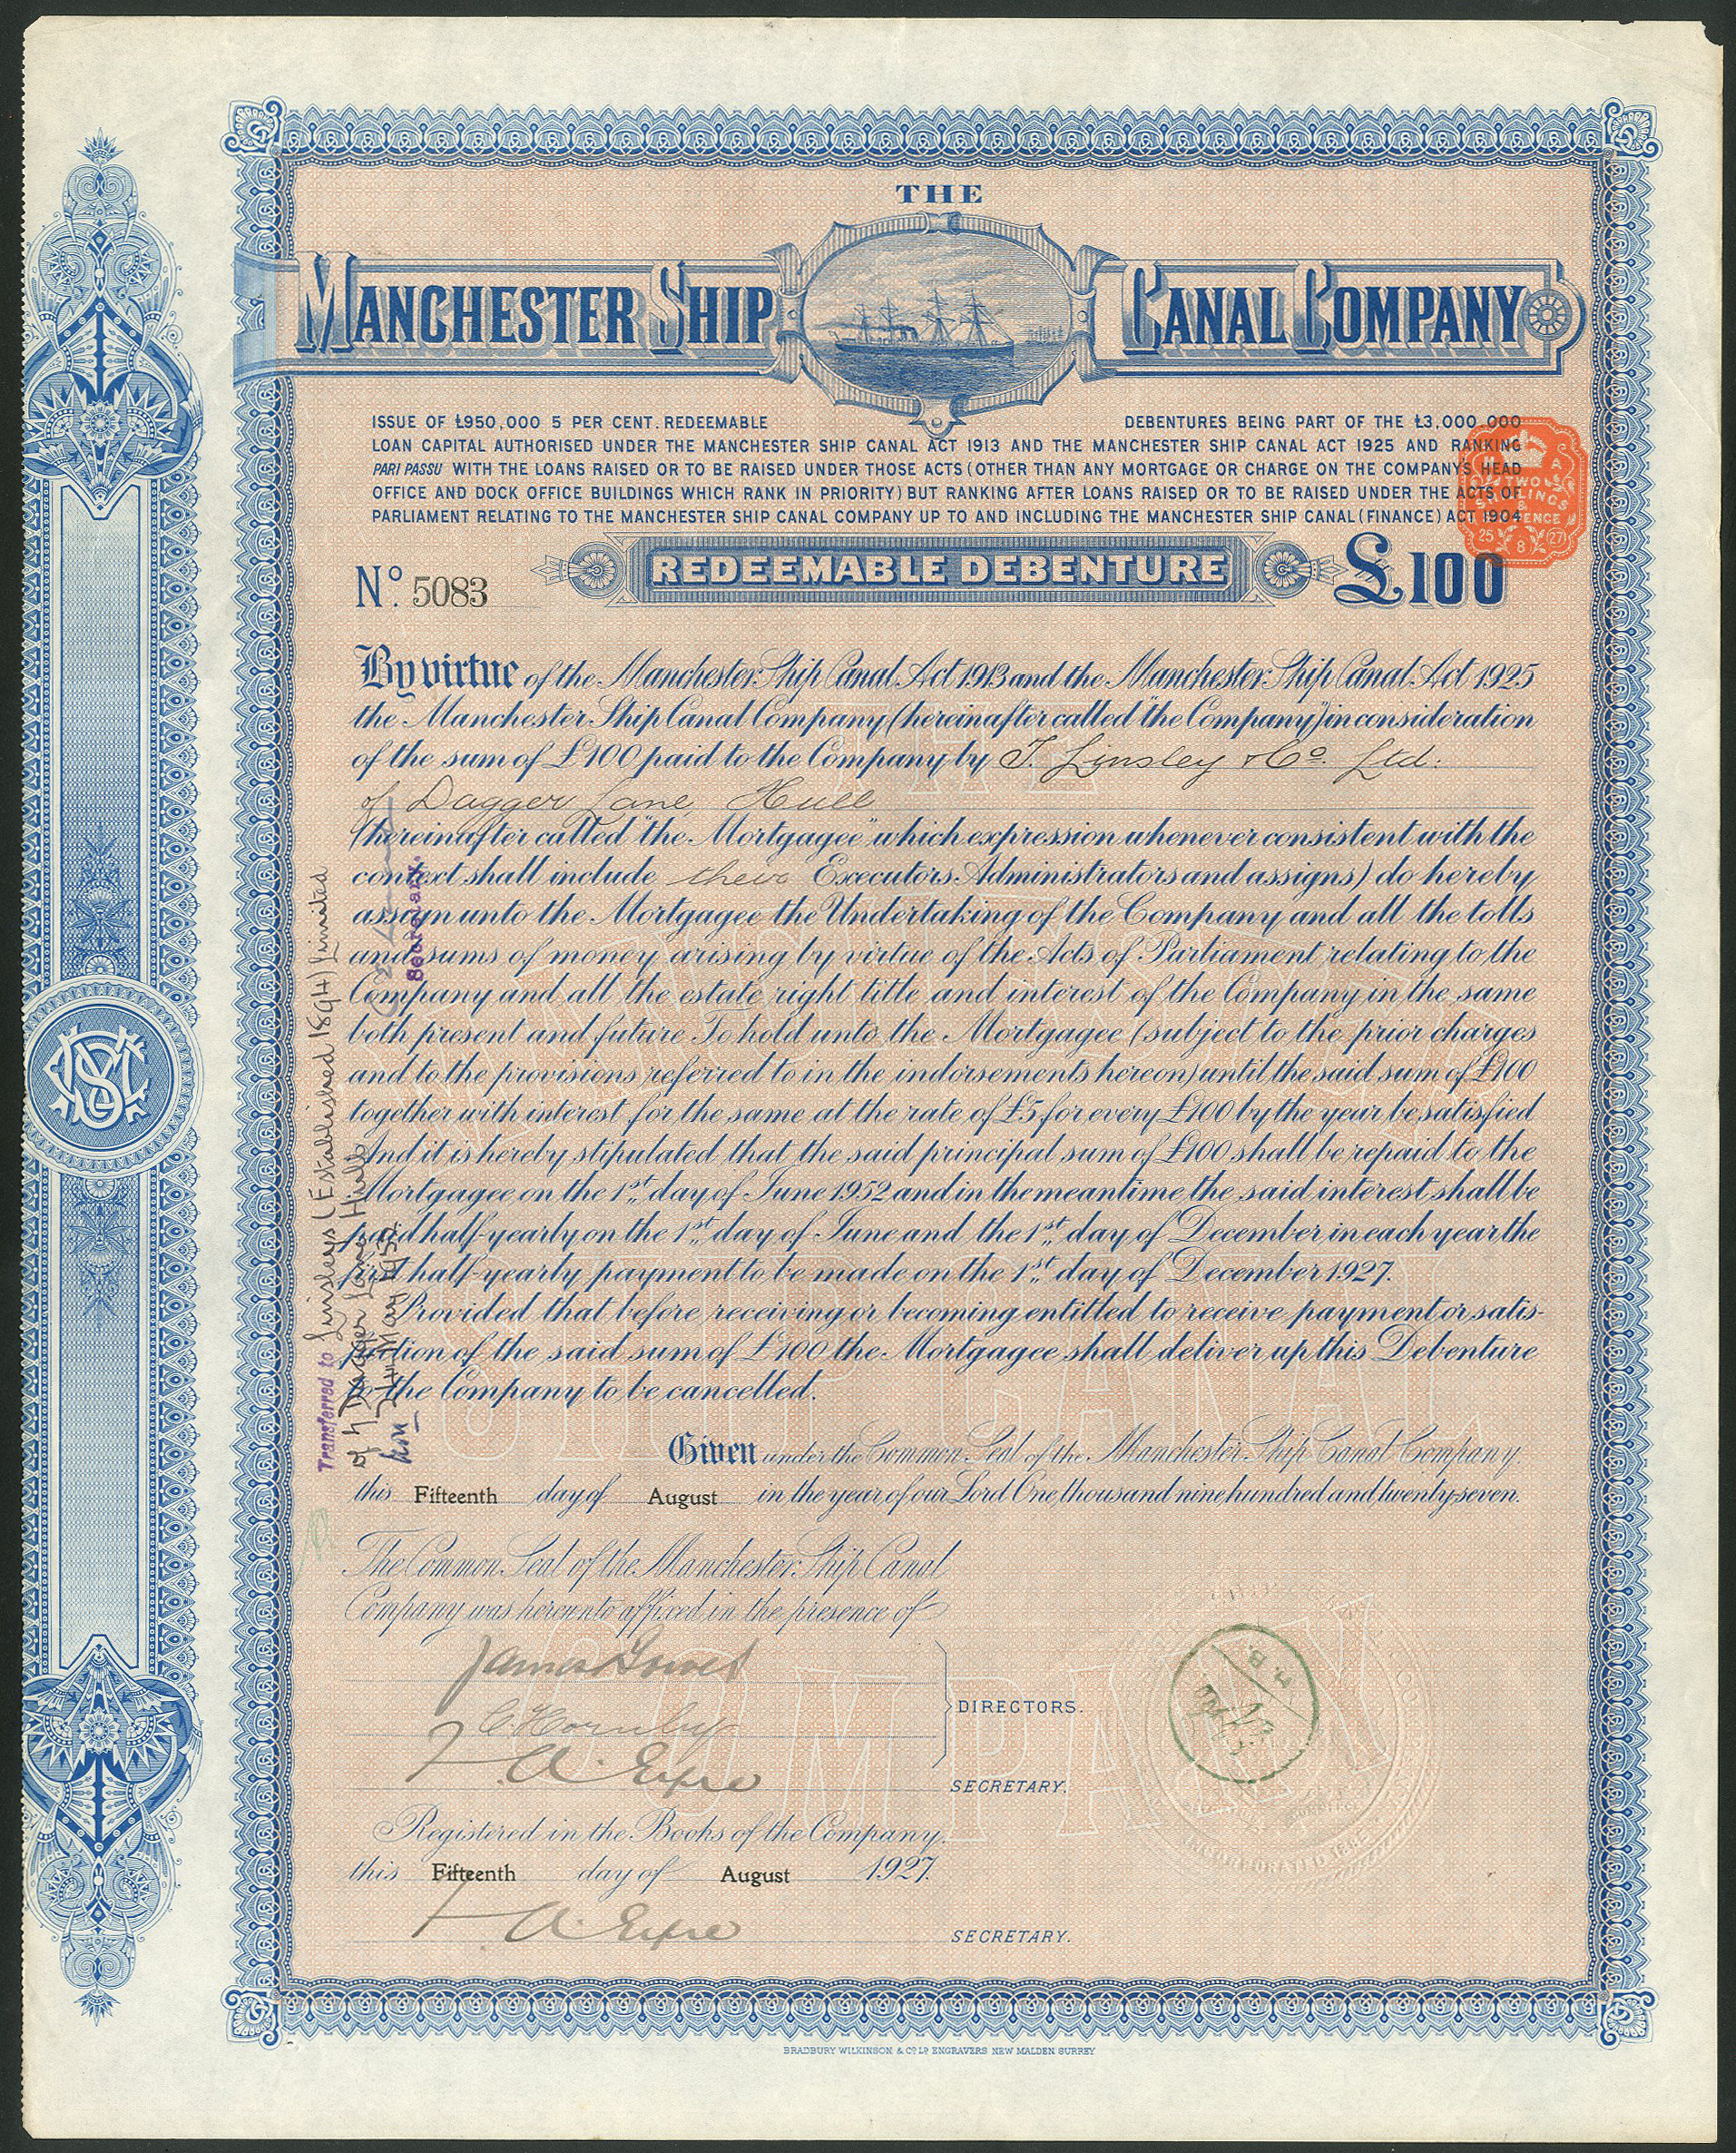 THE
MANCHESTER SHIP CANAL COMPANY
ISSUE OF £950,000 5 PER CENT. REDEEMABLE DEBENTURES BEING PART OF THE £3,000,000
LOAN CAPITAL AUTHORISED UNDER THE MANCHESTER SHIP CANAL ACT 1913 AND THE MANCHESTER SHIP CANAL ACT 1925 AND RANKING
PARI PASSU WITH THE LOANS RAISED OR TO BE RAISED UNDER THOSE ACTS (OTHER THAN ANY MORTGAGE OR CHARGE ON THE COMPANYS HEAD
OFFICE AND DOCK OFFICE BUILDINGS WHICH RANK IN PRIORITY) BUT RANKING AFTER LOANS RAISED OR TO BE RAISED UNDER THE ACTS OF
PARLIAMENT RELATING TO THE MANCHESTER SHIP CANAL COMPANY UP TO AND INCLUDING THE MANCHESTER SHIP CANAL (FINANCE) ACT 1904
TWO
25 8 27
No. 5083 REDEEMABLE DEBENTURE £100
By virtue of the Manchester Ship Canal Act 1913 and the Manchester Ship Canal Act 1925
the Manchester Ship Canal Company (hereinafter called "the Company") in consideration
of the sum of £100 paid to the Company by T. Linsley & Co. Ltd.
of Dagger Lane, Hull
(hereinafter called "the Mortgagee" which expression whenever consistent with the
context shall include their Executors Administrators and assigns) do hereby
assign unto the Mortgagee the Undertaking of the Company and all the tolls
and sums of money arising by virtue of the Acts of Parliament relating to the
Company and all the estate right title and interest of the Company in the same
both present and future To hold unto the Mortgagee (subject to the prior charges
and to the provisions referred to in the indorsements hereon) until the said sum of £100
together with interest for the same at the rate of £5 for every £100 by the year be satisfied
And it is hereby stipulated that the said principal sum of £100 shall be repaid to the
Mortgagee on the 1st day of June 1952 and in the meantime the said interest shall be
paid half-yearly on the 1st day of June and the 1st day of December in each year the
first half-yearly payment to be made on the 1st day of December 1927.
Provided that before receiving or becoming entitled to receive payment or satis-
faction of the said sum of £100 the Mortgagee shall deliver up this Debenture
to the Company to be cancelled.
Given under the Common Seal of the Manchester Ship Canal Company
this Fifteenth day of August in the year of our Lord One thousand nine hundred and twenty-seven.
The Common Seal of the Manchester Ship Canal
Company was hereunto affixed in the presence of
C. Hornby
DIRECTORS.
SECRETARY.
Registered in the Books of the Company.
this Fifteenth day of August 1927.
SECRETARY.
Transferred to Linsleys (Established 1894) Limited
of 4 Dagger Lane Hull
Secretary.
BRADBURY WILKINSON & Co. Ld. ENGRAVERS NEW MALDEN SURREY